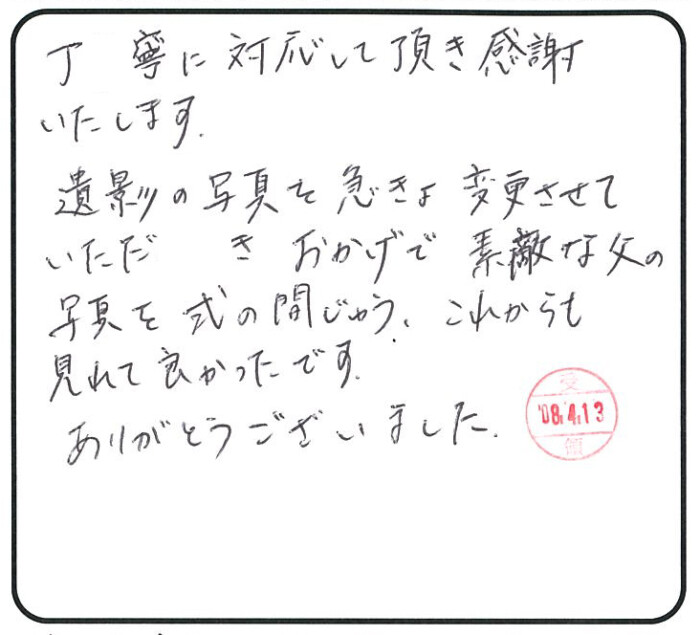 丁寧に対応して頂き感謝
いたします.
遺影の写真を急きょ変更させて
いただき おかげで 素敵な父の
写真を式の間じゅう、これからも
見れて良かったです.
ありがとうございました.
受
'08.4.13
領